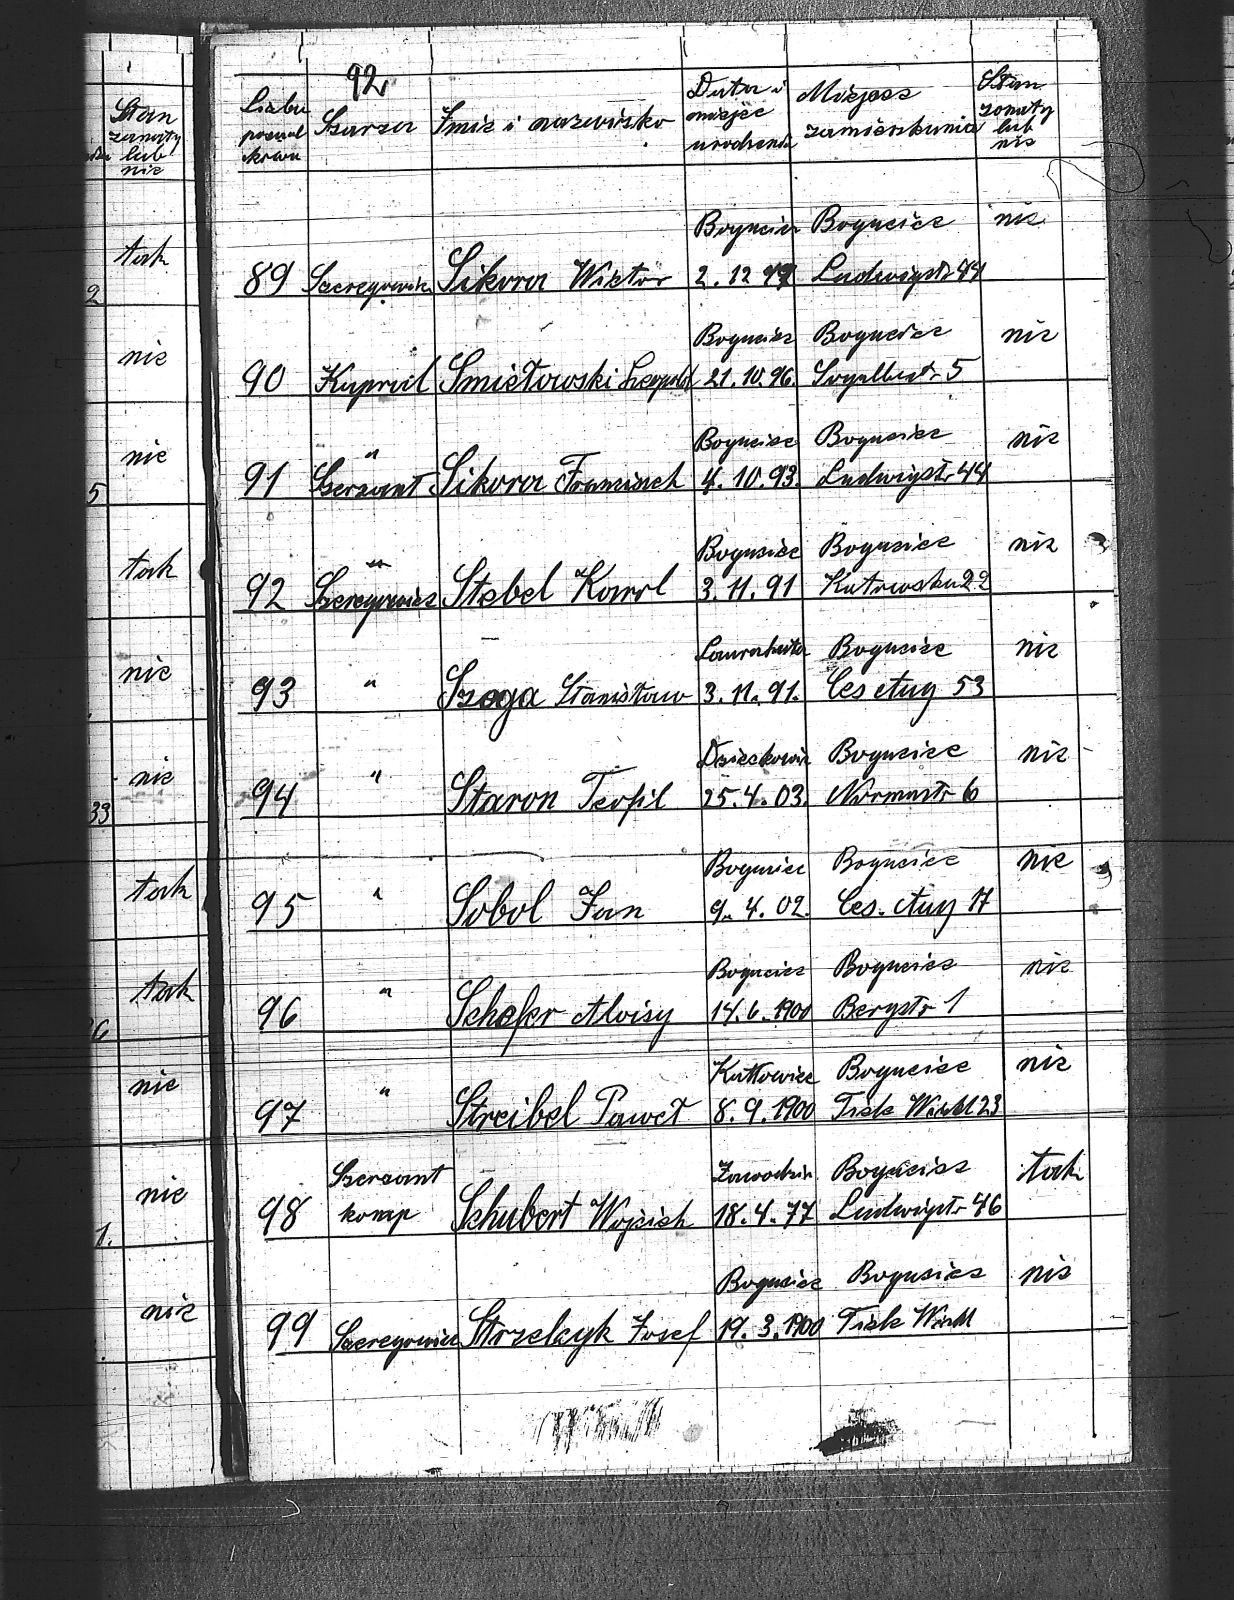 92
Stan
zonaty
lub
nie
Liczba
Szarza
Imie i nazewisko
Data i
miejsc
urodzenia
Miejsce
zamieszkania
Stan
zonaty
lub
nie
tak
Bogucice Bogucice nie
89 Szeregowiec Sikora Wiktor 2.12 Ludwigstr 44
nie
Bogucice Bogucice nie
90 Kapral Smiełowski 21.10.96. 5
nie
" Bogucice Bogucice nie
5
91 Serzant Sikora Francisek 4.10.93. Ludwigstr 44
tak
" Bogucice Bogucice nie
92 Szeregowiec Stebel Karol 3.11.91 22
nie
Laurahuta Bogucice nie
93 " Szoga Stanisław 3.11.91. Ces Aug 53
nie
" Bogucice nie
33
94 Staron Teofil 25.4.03. 6
tak
" Bogucice Bogucice nie
95 Sobol Jan 9.4.02. Ces. Aug 17
tak
" Bogucice Bogucice nie
96 Schefer Aloisy 14.6.1900 Bergstr 1
nie
" Kattowice Bogucice nie
97 Streibel Paweł 8.9.1900 23
nie
Serzant Zawodzie Bogucice tak
98 komp Schubert Wojciech 18.4.77 Ludwigstr 46
nie
Bogucice Bogucice nie
99 Szeregowiec Strzelczyk Josef 19.3.1900